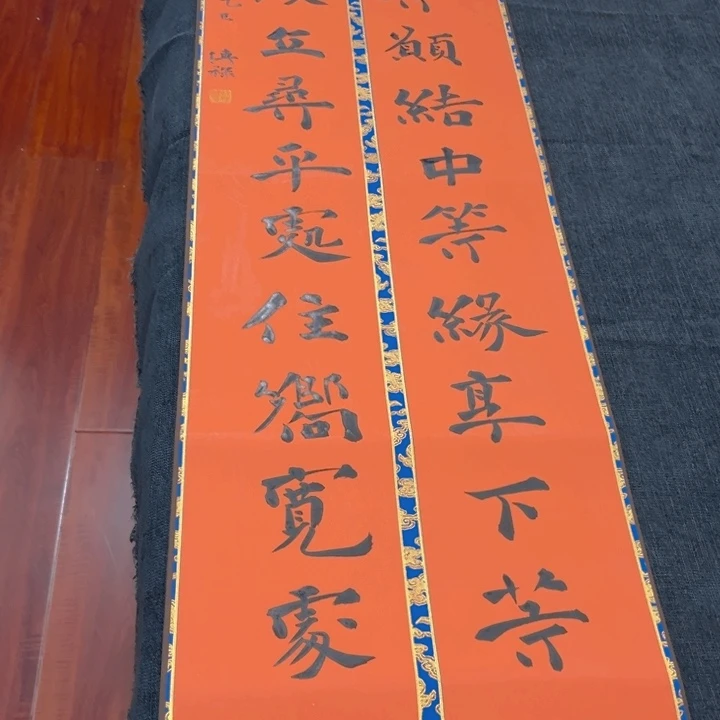 願結中等緣享下等
立尋平處住嚮寬處